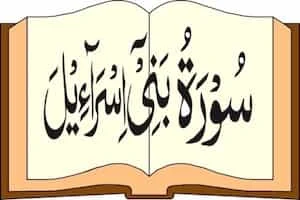 سُوْرَةُ بَنِیْٓ اِسْرَآءِیْلَ